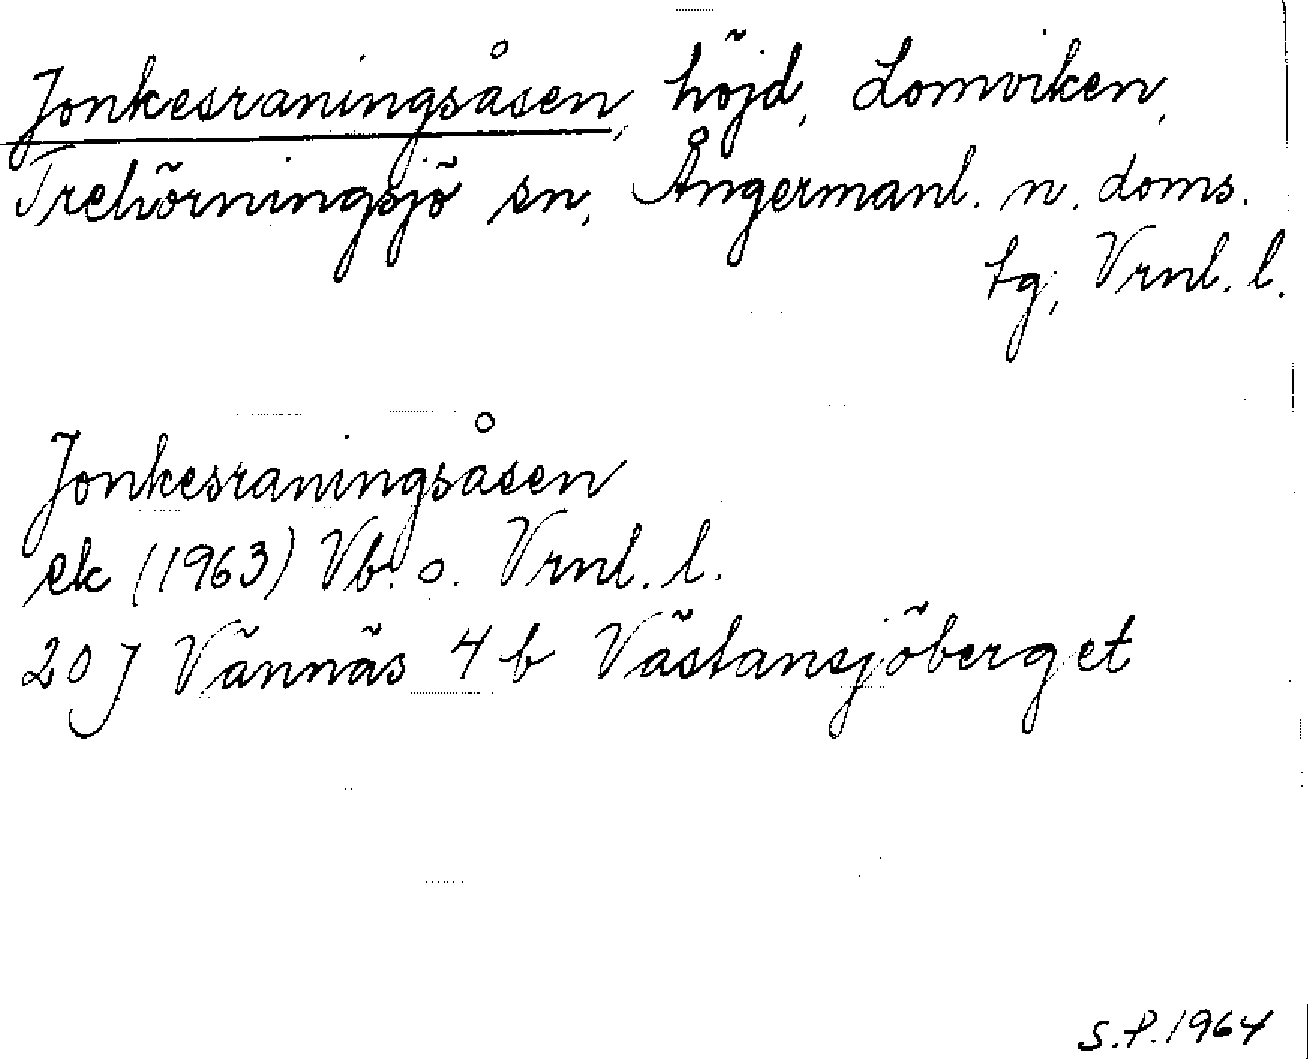 Jonkesraningsåsen, höjd, Lomviken,
Trehörningsjö sn, Ångermanl. n. doms.
tg, Vrnl. l.
Jonkesraningsåsen
ek (1963) Vb. o. Vrnl. l.
20 J Vännäs 4 b Västansjöberget
S.P. 1964